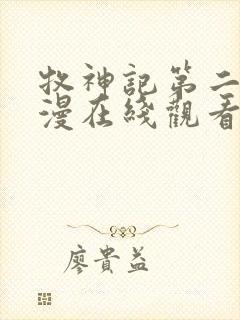 牧神記第二
漫在綫觀看
廖貴益